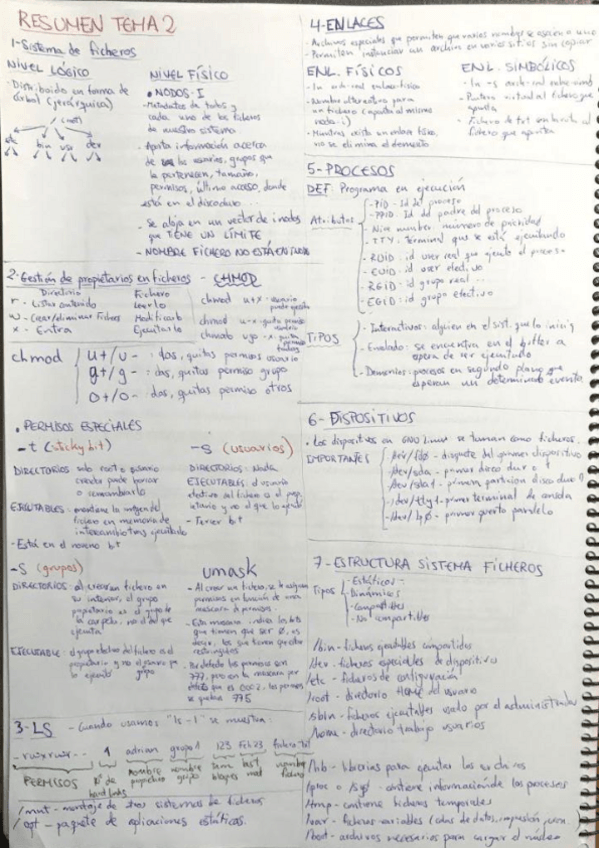 RESUMEN TEMA 2
1-Sistema de ficheros
NIVEL LÓGICO
- Distribuido en forma de
árbol (jerárquica)
(root)
etc bin usr dev
NIVEL FÍSICO
• NODOS-I
- Metadatos de todos y
cada uno de los ficheros
de nuestro sistema
- Aporta información acerca
de los usuarios, grupos que
le pertenecen, tamaño,
permisos, último acceso, donde
está en el disco duro...
- Se aloja en un vector de inodos
que TIENE UN LÍMITE
- NOMBRE FICHERO NO ESTÁ EN
2-Gestión de propietarios en ficheros - CHMOD
Directorio Fichero
r - Listar contenido Leerlo
w - Crear/eliminar ficheros Modificarlo
x - Entra Ejecutarlo
chmod u+x - usuario
chmod u-x - quita permiso
chmod ugo-x - quita
chmod
u+/u- : das, quitas permisos usuario
g+/g- : das, quitas permiso grupo
o+/o- : das, quitas permiso otros
• PERMISOS ESPECIALES
-t (sticky bit)
DIRECTORIOS: solo root o usuario
creador puede borrar
o renombrarlo
EJECUTABLES: mantiene la imagen del
fichero en memoria de
intercambio tras ejecutarlo
- Está en el noveno bit
-S (usuarios)
DIRECTORIOS: Nada
EJECUTABLES: el usuario
efectivo del fichero es el propietario
y no el que lo ejecuta
- Tercer bit
-S (grupos)
DIRECTORIOS: al crear un fichero en
su interior, el grupo
propietario es el grupo de
la carpeta, no el del que
ejecuta
EJECUTABLE: el grupo efectivo del fichero es el
propietario y no el
ejecutó grupo
umask
- Al crear un fichero, se le asignan
permisos en función de una
máscara de permisos.
- Esta máscara indica los bits
que tienen que ser 0, es
decir, los que tienen que estar
restringidos
- Por defecto los permisos son
777, pero en la máscara por
defecto que es 0002, los permisos
se quedan 775
3-LS - Cuando usamos "ls -l" se muestra:
-rwxrwxr-- 1 adrian grupo1 123 Feb23 fichero.txt
PERMISOS Nº de hard links nombre propietario nombre grupo nombre fichero
/mnt - montaje de otros sistemas de ficheros
/opt - paquete de aplicaciones estáticas.
4-ENLACES
- Archivos especiales que permiten que varios nombres se asocien a uno
- Permiten instanciar un archivo en varios sitios sin copiar
ENL. FÍSICOS
- ln arch-real enlace-físico
- Nombre alternativo para
un fichero (apunta al mismo
nodo-i)
- Mientras exista un enlace físico,
no se elimina el elemento
ENL. SIMBÓLICOS
- ln -s arch-real enlace-simb
- Puntero virtual al fichero que
apunta
- Fichero de txt con la ruta al
fichero que apunta
5-PROCESOS
DEF Programa en ejecución
Atributos
- PID - Id del proceso
- PPID. Id del padre del proceso
- Nice number. número de prioridad
- TTY. Terminal que se está ejecutando
- RUID: id user real que ejecuta el proceso
- EUID: id user efectivo
- RGID: id grupo real
- EGID: id grupo efectivo
TIPOS
- Interactivos: alguien en el sist. que lo inicia
- Encolado: se encuentra en el buffer a
espera de ser ejecutado
- Demonios: procesos en segundo plano que
esperan un determinado evento
6-DISPOSITIVOS
• Los dispositivos en GNU Linux se toman como ficheros.
IMPORTANTES
/dev/fd0 - disquete del primer dispositivo
/dev/sda - primer disco duro
/dev/sda1 - primera partición disco duro 1
/dev/tty1 - primer terminal de consola
/dev/lp0 - primer puerto paralelo
7-ESTRUCTURA SISTEMA FICHEROS
Tipos
- Estáticos -
- Dinámicos
- Compartibles
- No compartibles
/bin - ficheros ejecutables compartidos
/dev - ficheros especiales de dispositivo
/etc - ficheros de configuración
/root - directorio HOME del usuario
/sbin - ficheros ejecutables usado por el administrador
/home - directorio trabajo usuarios
/lib - librerías para ejecutar los archivos
/proc o /sys - contiene información de los procesos
/tmp - contiene ficheros temporales
/var - ficheros variables (colas de datos, impresión,
/boot - archivos necesarios para cargar el núcleo